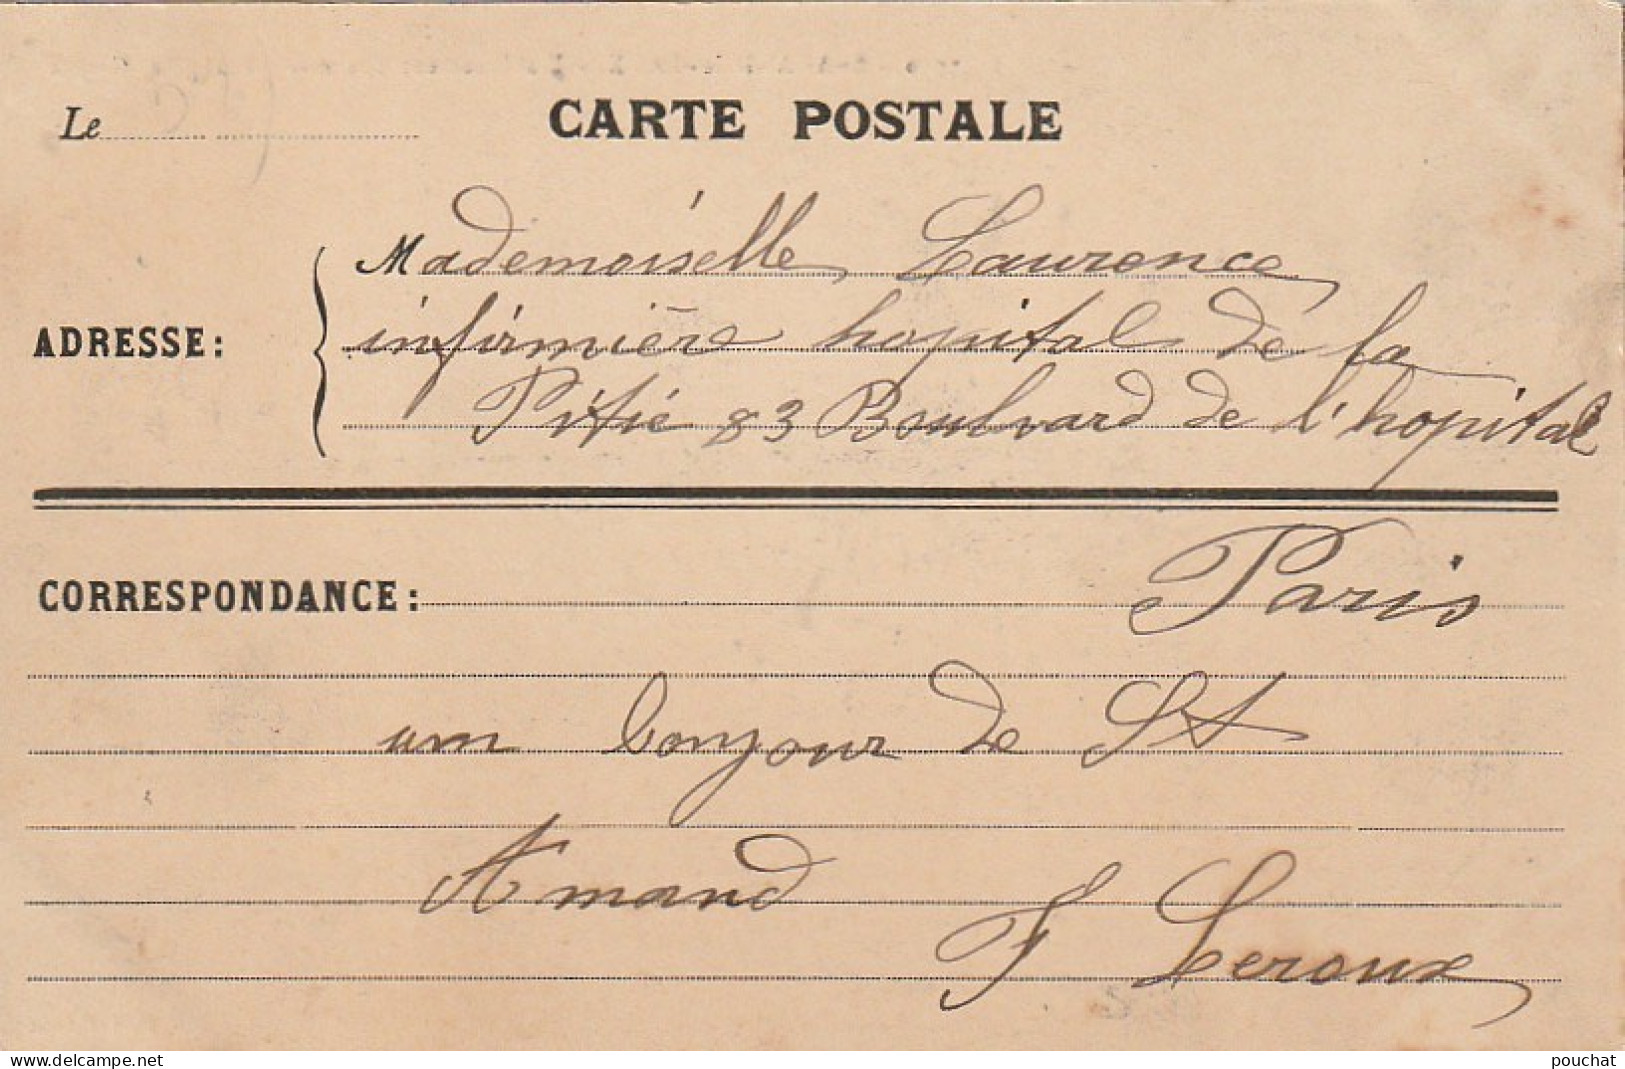 CARTE POSTALE
Le
Mademoiselle Laurence
ADRESSE: infirmière hopital de la
Pitié 83 Boulvard de l'hopital
CORRESPONDANCE: Paris
un bonjour de St
Amand
F Leroux
www.delcampe.net
pouchat